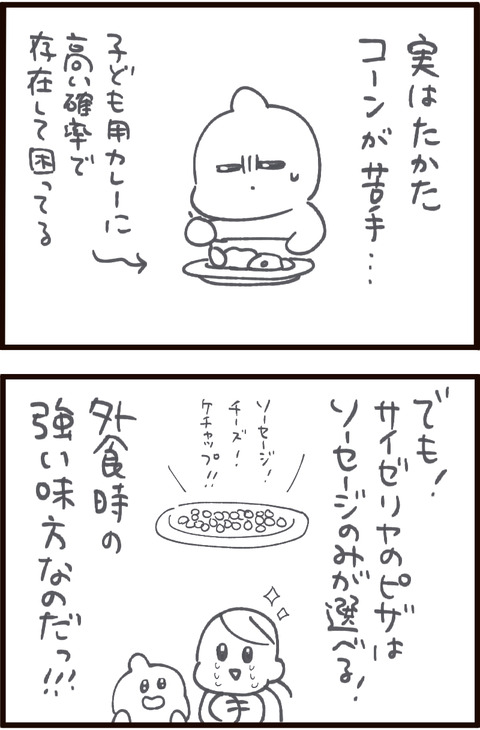 実はたかた
コーンが苦手…
子ども用カレーに
高い確率で
存在して困ってる
でも！
サイゼリヤのピザは
ソーセージのみが選べる！
ソーセージ！
チーズ！
ケチャップ!!
外食時の
強い味方なのだっ!!!